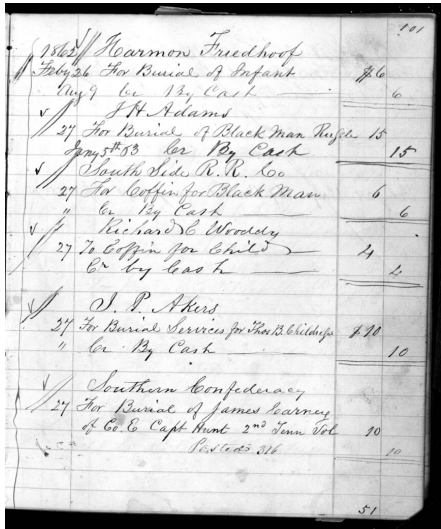 101
1862 Harmon Friedhoof
Feby 26 For Burial of Infant $6
Aug 9 Cr By Cash 6
J H Adams
27 For Burial of Black Man 15
Jany 5th 63 Cr By Cash 15
South Side R. R. Co
27 For Coffin for Black Man 6
" Cr By Cash 6
Richard C Wooddy
27 To Coffin for Child 4
Cr by Cash 4
S. P. Akers
27 For Burial Services for Thos B. $10
" Cr By Cash 10
Southern Confederacy
27 For Burial of James Karney
of Co. E Capt Hunt 2nd Tenn Vol 10
Posted 316 10
51